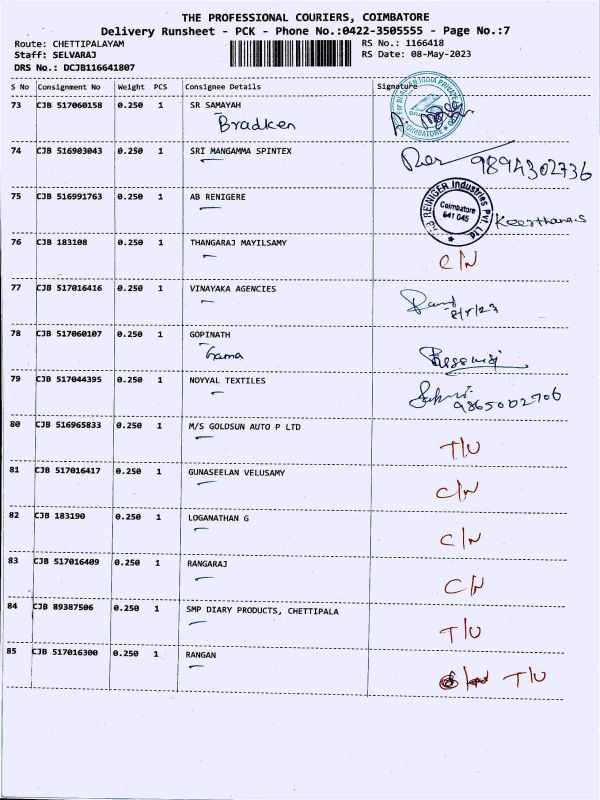 THE PROFESSIONAL COURIERS, COIMBATORE
Delivery Runsheet - PCK - Phone No.:0422-3505555 - Page No.:7
Route: CHETTIPALAYAM RS No.: 1166418
Staff: SELVARAJ RS Date: 08-May-2023
DRS No.: DCJB116641807
S No Consignment No Weight PCS Consignee Details Signature
73 CJB 517060158 0.250 1 SR SAMAYAH
Bradken
COIMBATORE
74 CJB 516903043 0.250 1 SRI MANGAMMA SPINTEX 9894302736
75 CJB 516991763 0.250 1 AB RENIGERE
REINIGER Industries Pvt. Ltd.
Coimbatore
641 045
Keerthana.S
76 CJB 183108 0.250 1 THANGARAJ MAYILSAMY
C/N
77 CJB 517016416 0.250 1 VINAYAKA AGENCIES
8/5/23
78 CJB 517060107 0.250 1 GOPINATH
Gama
79 CJB 517044395 0.250 1 NOYYAL TEXTILES
9865002706
80 CJB 516965833 0.250 1 M/S GOLDSUN AUTO P LTD
T/U
81 CJB 517016417 0.250 1 GUNASEELAN VELUSAMY
C/N
82 CJB 183190 0.250 1 LOGANATHAN G
C/N
83 CJB 517016409 0.250 1 RANGARAJ
C/N
84 CJB 89387506 0.250 1 SMP DIARY PRODUCTS, CHETTIPALA
T/U
85 CJB 517016300 0.250 1 RANGAN
T/U